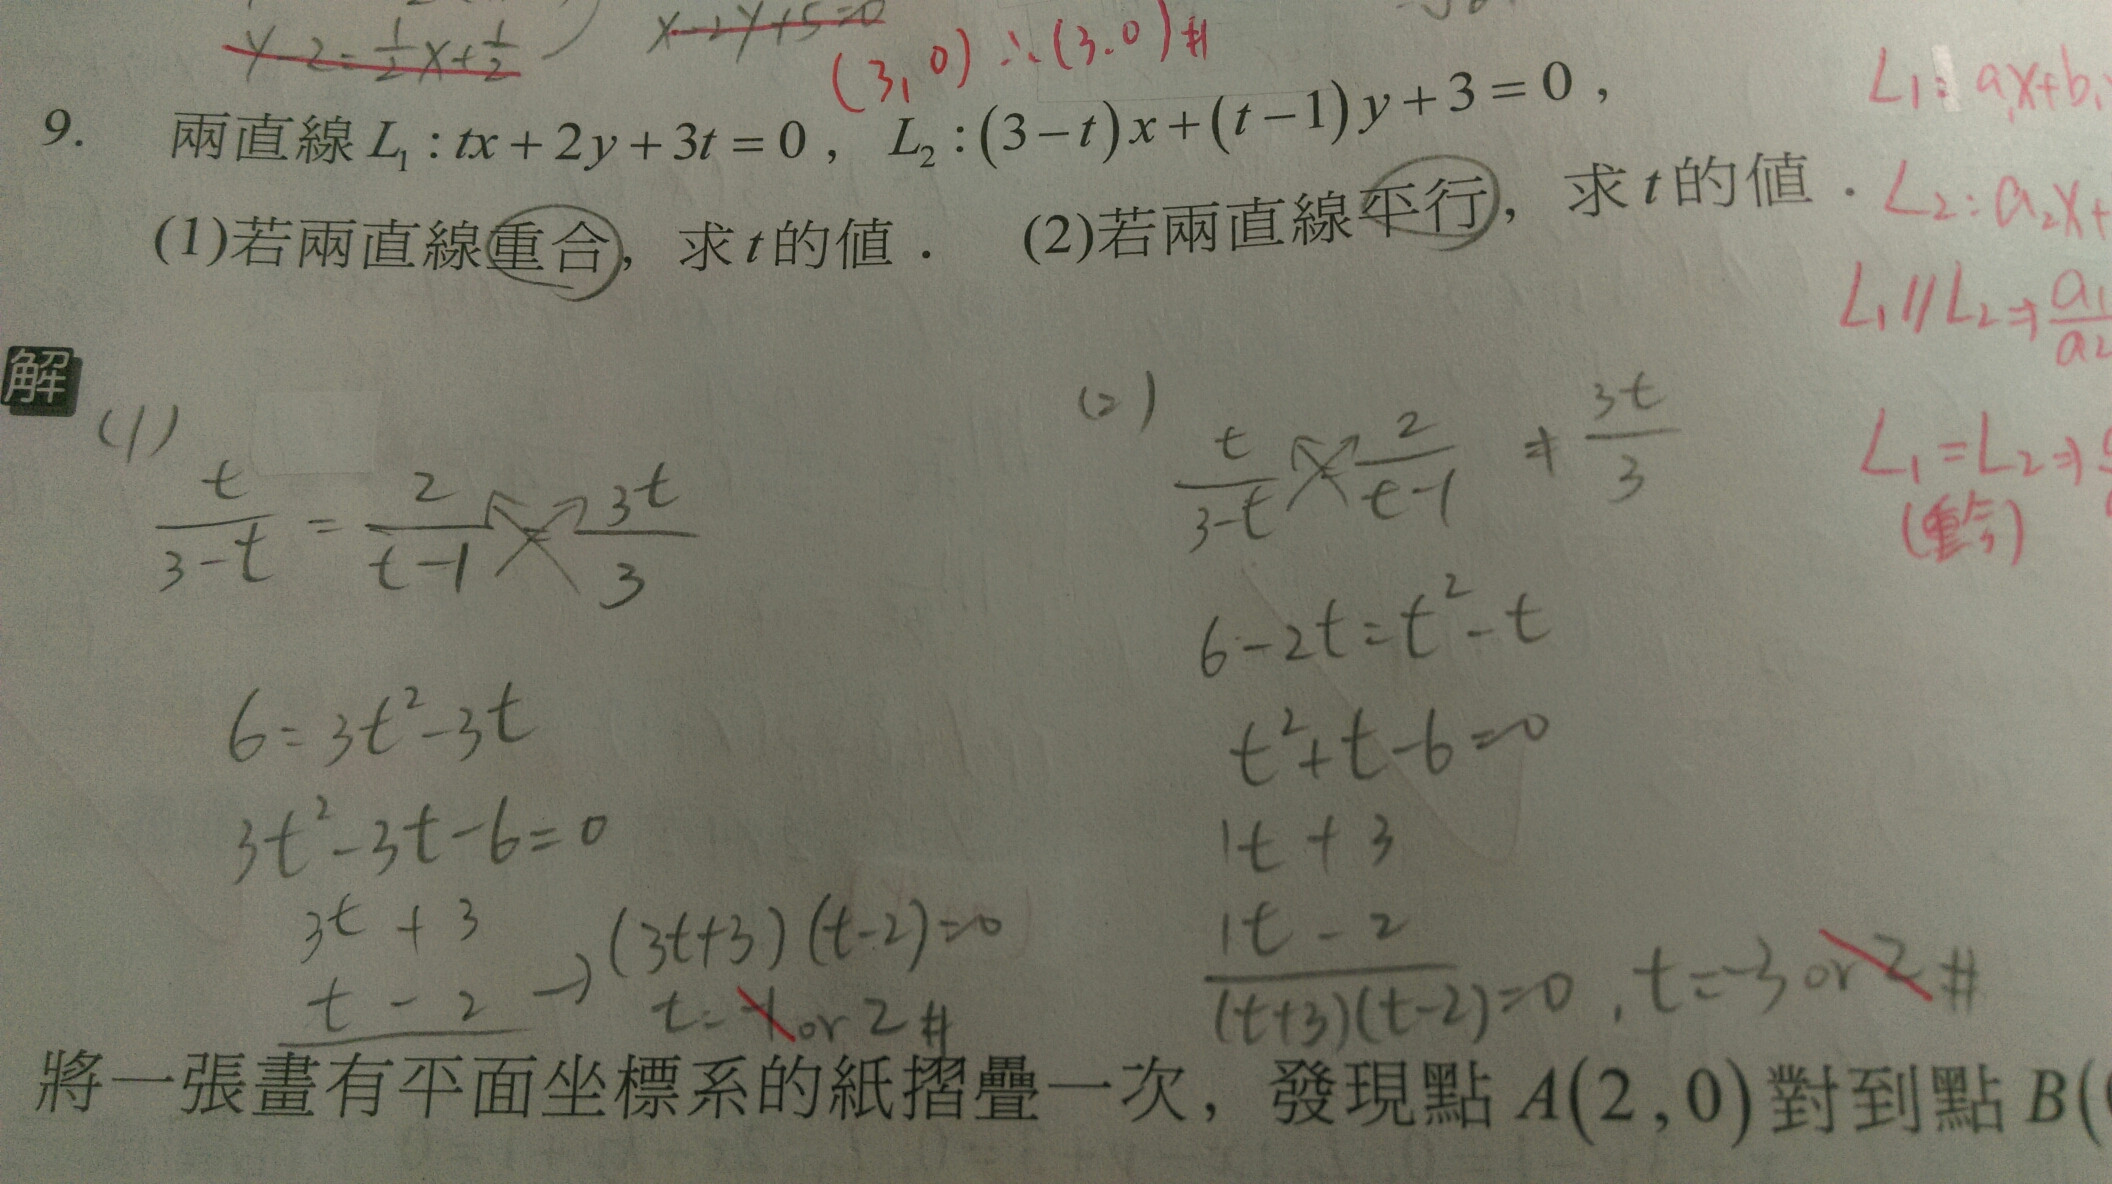 y-2=1/2x+1/2
x-2y+5=0
(3,0) ∴(3.0)#
9. 兩直線 L₁ : tx + 2y + 3t = 0 , L₂ : (3-t)x + (t-1)y + 3 = 0 ,
(1)若兩直線重合, 求 t 的值 . (2)若兩直線平行, 求 t 的值 .
L₁: a₁x+b₁
L₂: a₂x+
L₁//L₂⇒ a₁/a₂
L₁=L₂⇒
(重合)
解
(1)
t/(3-t) = 2/(t-1) = 3t/3
6=3t²-3t
3t²-3t-6=0
3t + 3
t - 2 → (3t+3)(t-2)=0
t=-1 or 2#
(2)
t/(3-t) = 2/(t-1) ≠ 3t/3
6-2t=t²-t
t²+t-6=0
1t + 3
1t - 2
(t+3)(t-2)=0 , t=-3 or 2#
將一張畫有平面坐標系的紙摺疊一次, 發現點 A(2,0) 對到點 B(